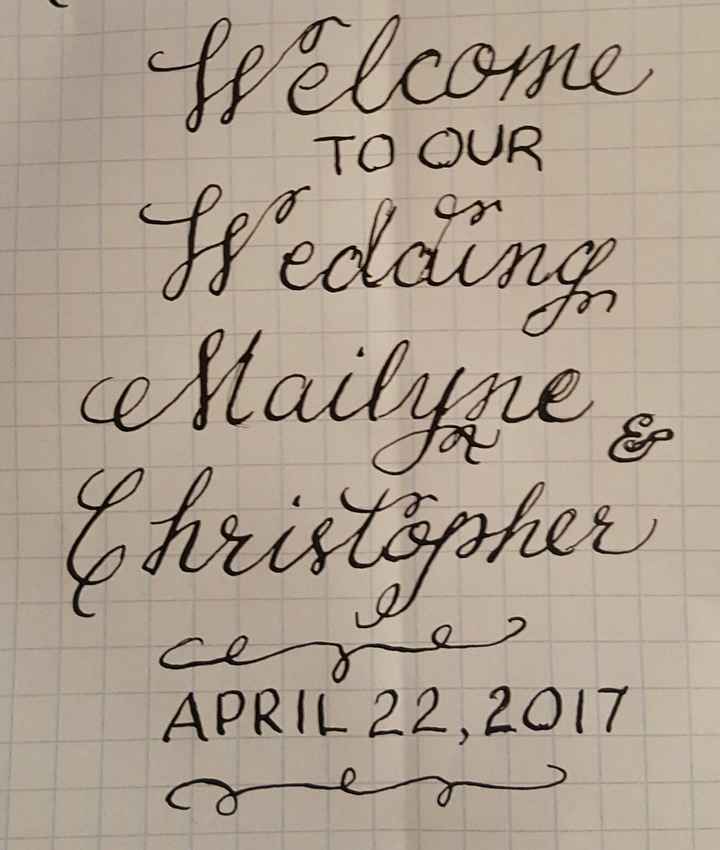 Welcome
TO OUR
Wedding
Mailyne &
Christopher
APRIL 22, 2017